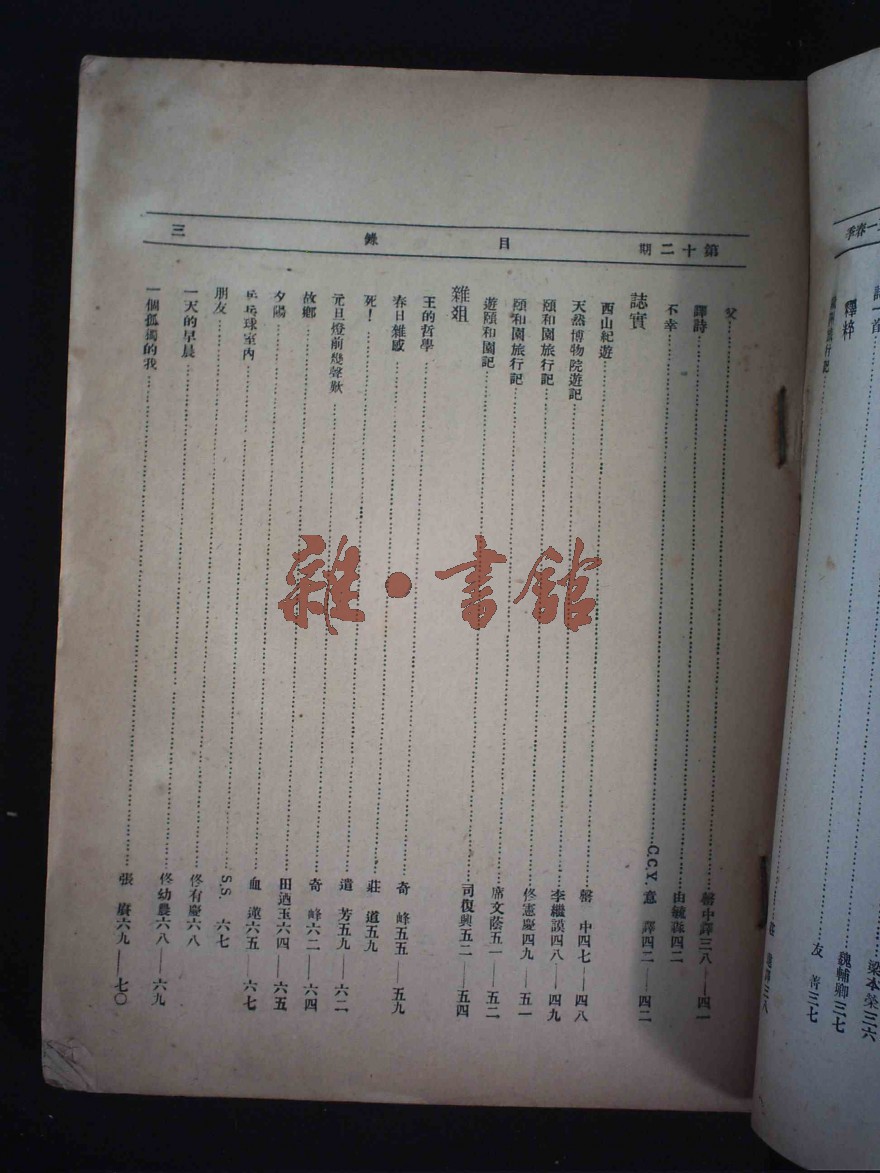 一春季
詩一首
梁本榮三六
魏輔卿三七
譯粹
旅行記
友 善三七
三八
第十二期 目錄 三
父 罄中譯三八——四一
譯詩 由毓淼四二
不幸 C.C.Y. 意 譯四二——四二
誌實
西山紀遊 罄 中四七——四八
天然博物院遊記 李繼謨四八——四九
頤和園旅行記 佟憲慶四九——五一
頤和園旅行記 席文蔭五一——五二
遊頤和園記 司復興五二——五四
雜俎
王的哲學 奇 峰五五——五九
春日雜感 莊 道五九
死! 遺 芳五九——六二
元旦燈前幾聲歎 奇 峰六二——六四
故鄉 田迺玉六四——六五
夕陽 血 蓮六五——六七
乒乓球室內 S.S. 六七
朋友 佟有慶六八
一天的早晨 佟幼農六八——六九
一個孤獨的我 張 賡六九——七〇
雜·書館